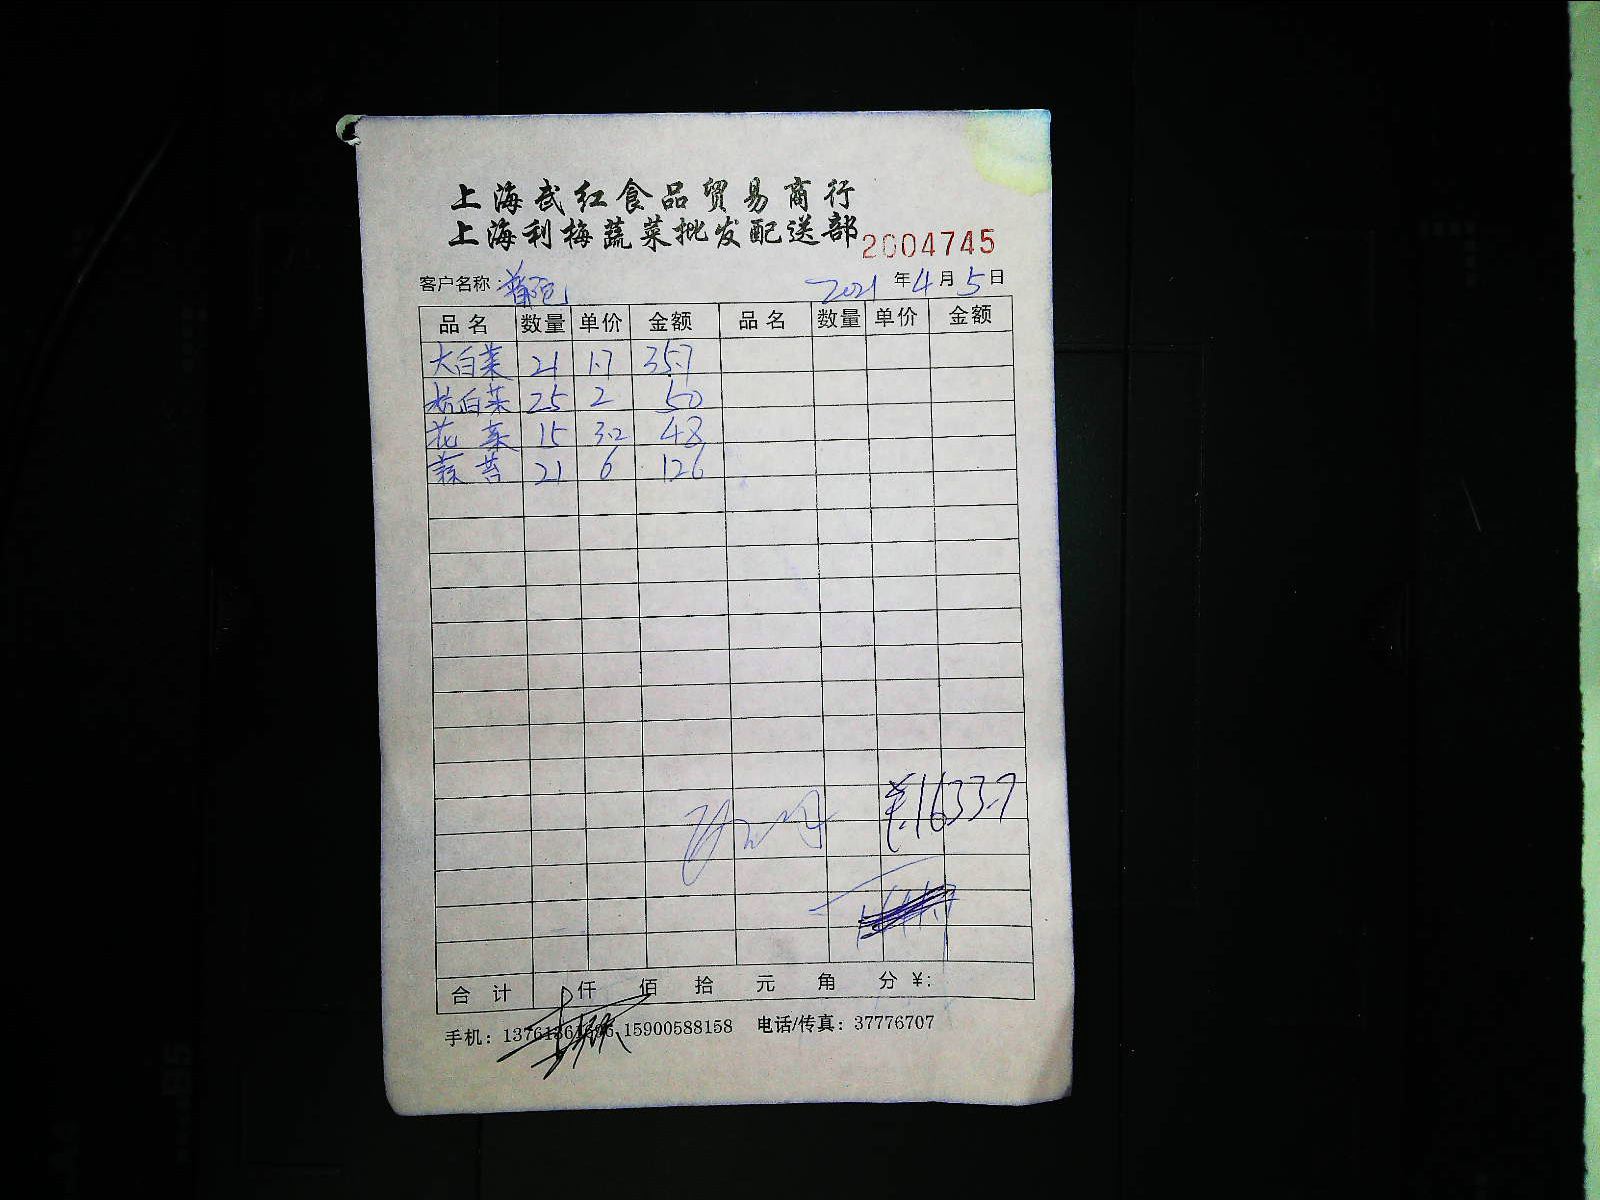 上海武红食品贸易商行
上海利梅蔬菜批发配送部 2004745
客户名称: 2021 年 4 月 5 日
品名 数量 单价 金额 品名 数量 单价 金额
大白菜 21 1.7 35.7
白菜 25 2 50
花菜 15 3.2 48
蒜苔 21 6 126
¥:1633.7
合计 仟 佰 拾 元 角 分 ¥:
手机: 15900588158 电话/传真: 37776707